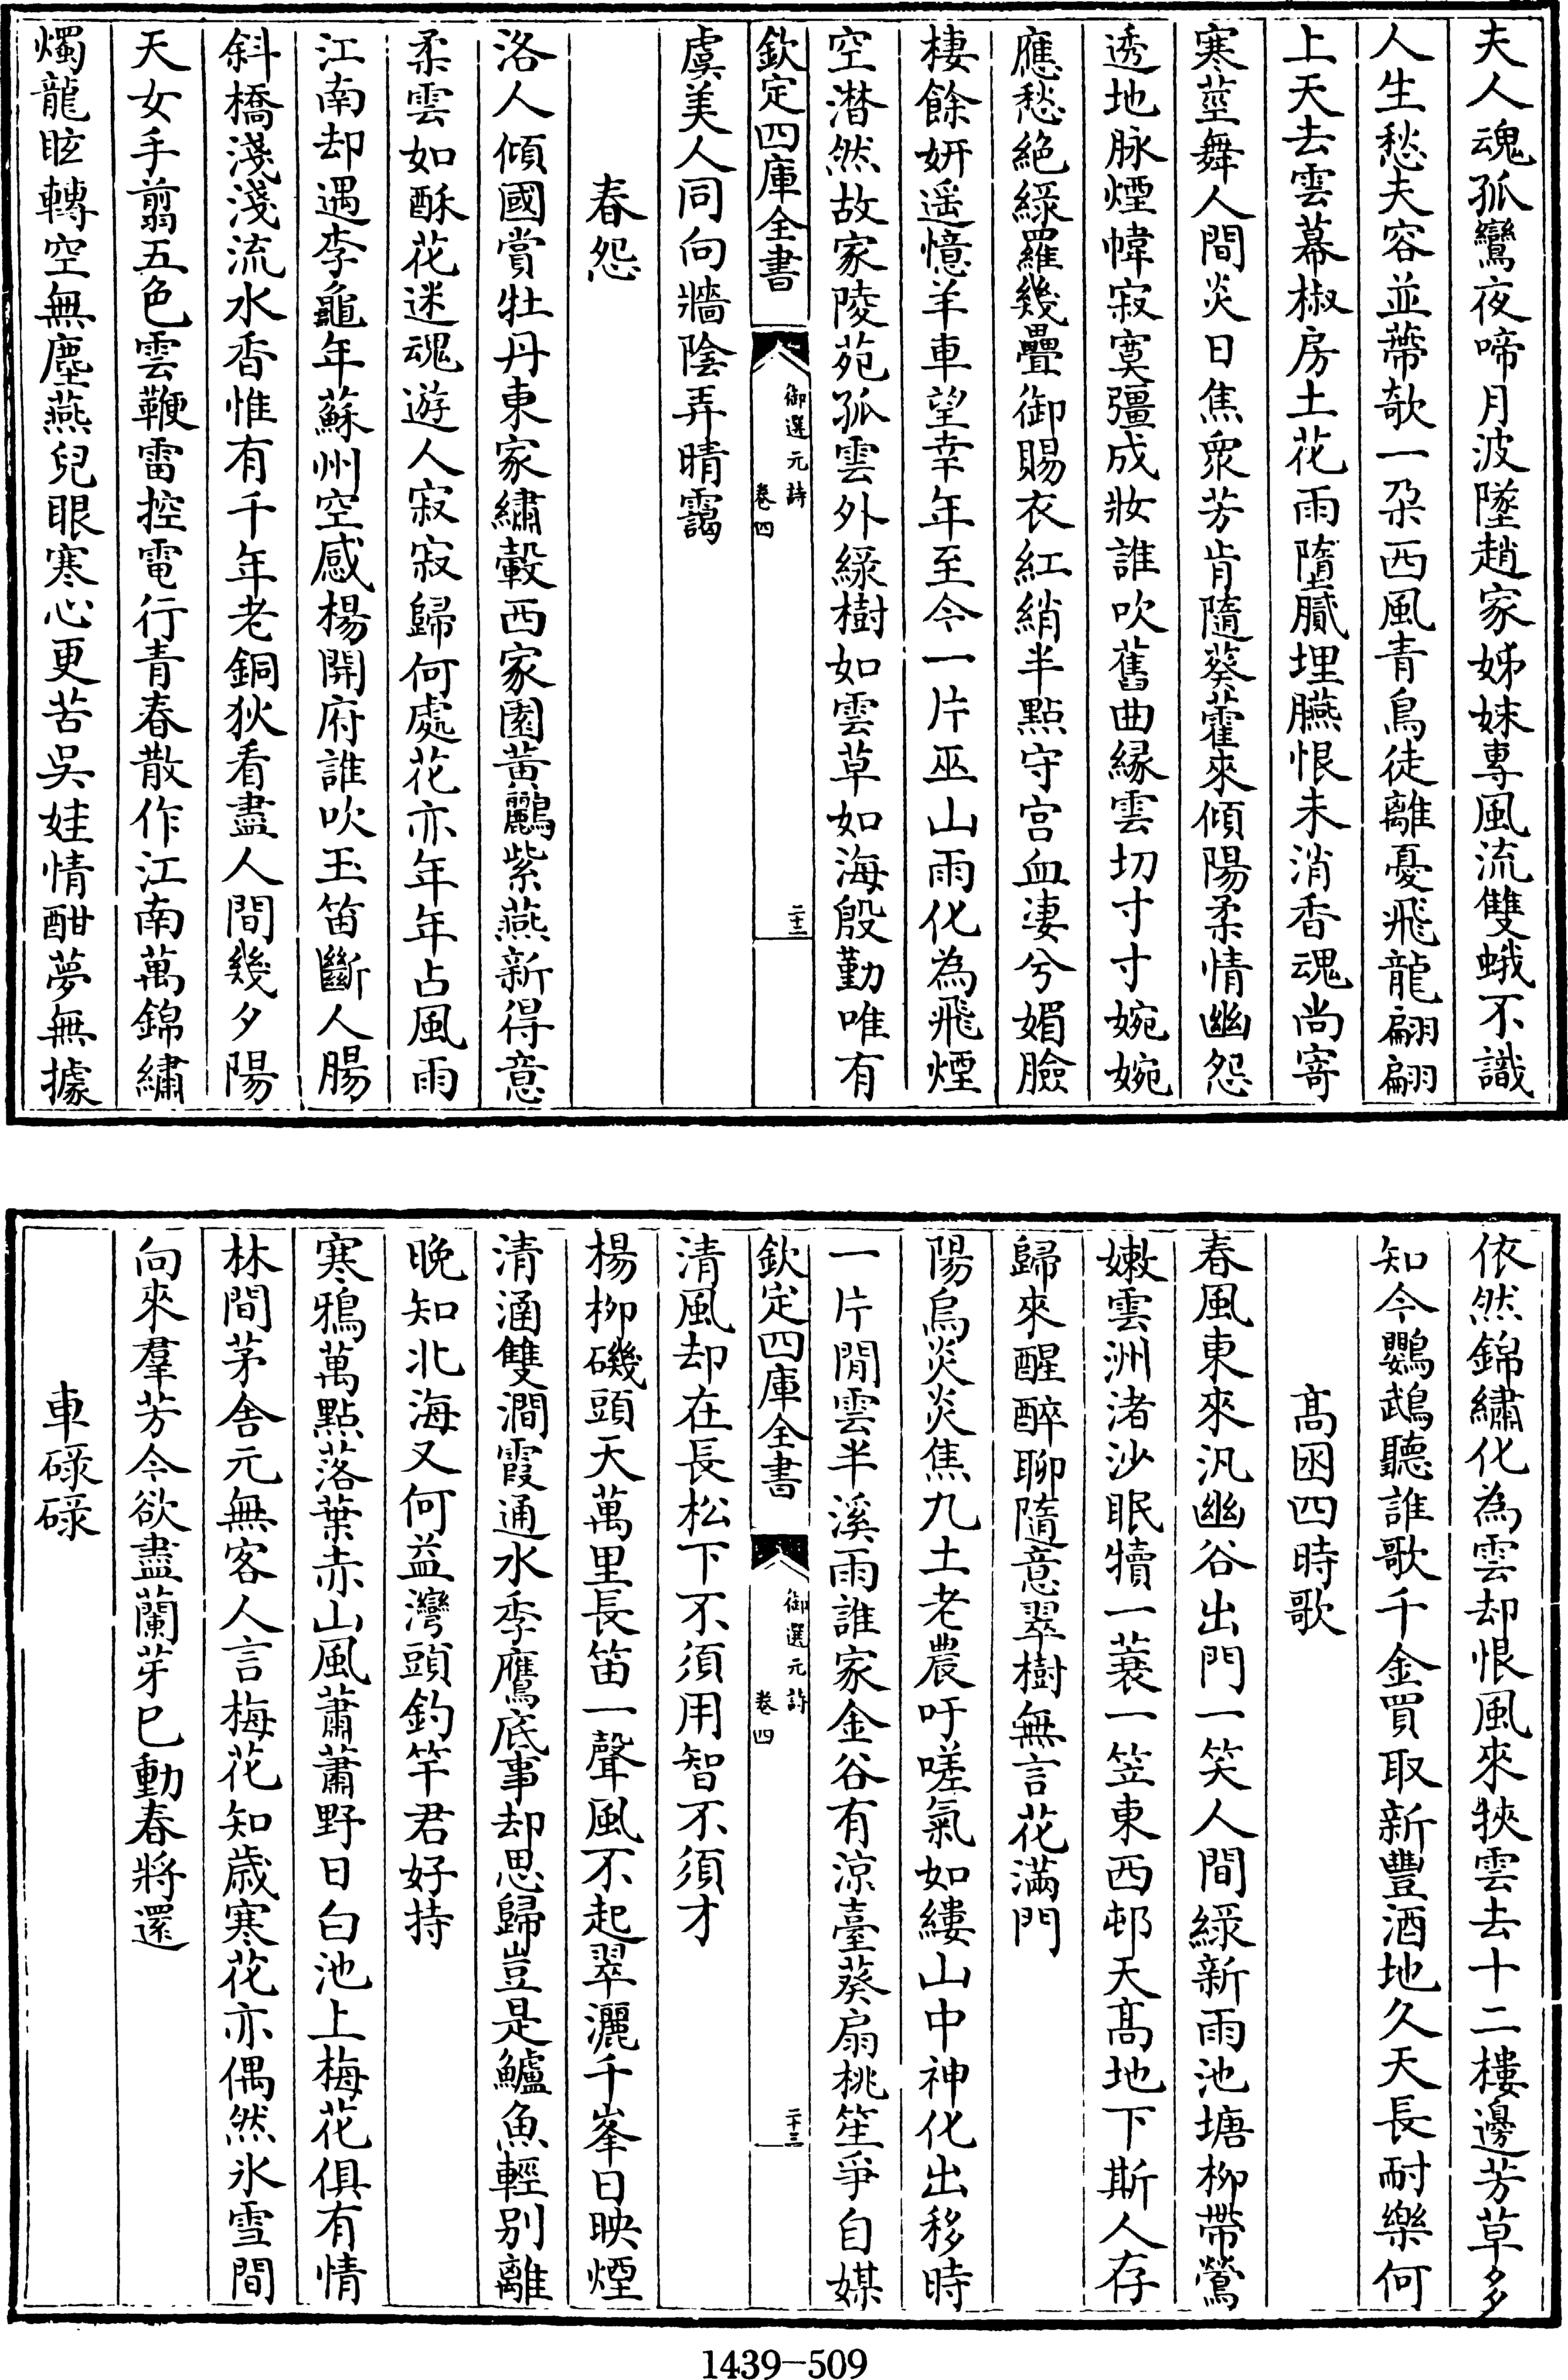 夫人魂孤鸞夜啼月波墜趙家姊妹專風流雙蛾不識
人生愁夫容並蒂欹一朶西風青鳥徒離憂飛龍翩翩
上天去雲幕椒房土花雨隋膩埋臙恨未消香魂尚寄
寒莖舞人間炎日焦衆芳肯隨葵藿來傾陽柔情幽怨
透地脉煙幃寂寞彊成妝誰吹舊曲緣雲切寸寸婉婉
應愁絶緑羅幾疊御賜衣紅綃半點守宫血凄兮媚臉
棲餘妍遥憶羊車望幸年至今一片巫山雨化為飛煙
空潸然故家陵苑孤雲外緑樹如雲草如海殷勤唯有
欽定四庫全書 御選元詩 卷四 二十三
虞美人同向牆陰弄晴靄
春怨
洛人傾國賞牡丹東家繡轂西家園黄鸝紫燕新得意
柔雲如酥花迷魂遊人寂寂歸何處花亦年年占風雨
江南却遇李龜年蘇州空感楊開府誰吹玉笛斷人腸
斜橋淺淺流水香惟有千年老銅狄看盡人間幾夕陽
天女手翦五色雲鞭雷控電行青春散作江南萬錦繡
燭龍眩轉空無塵燕兒眼寒心更苦吳娃情酣夢無據
依然錦繡化為雲却恨風來狹雲去十二樓邊芳草多
知今鸚鵡聽誰歌千金買取新豐酒地久天長耐樂何
髙囦四時歌
春風東來汎幽谷出門一笑人間緑新雨池塘柳帶鶯
嫩雲洲渚沙眠犢一蓑一笠東西邨天髙地下斯人存
歸來醒醉聊隨意翠樹無言花滿門
陽烏炎炎焦九土老農吁嗟氣如縷山中神化出移時
一片閒雲半溪雨誰家金谷有涼臺葵扇桃笙爭自媒
欽定四庫全書 御選元詩 卷四 二十三
清風却在長松下不須用智不須才
楊柳磯頭天萬里長笛一聲風不起翠灑千峯日映煙
清涵雙澗霞通水季鷹底事却思歸豈是鱸魚輕别離
晚知北海又何益灣頭釣竿君好持
寒鴉萬點落葉赤山風蕭蕭野日白池上梅花俱有情
林間茅舍元無客人言梅花知歳寒花亦偶然氷雪間
向來羣芳今欲盡蘭芽已動春將還
車碌碌
1439-509